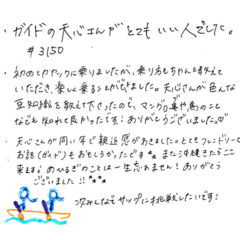 ・ガイドの天心さんがとてもいい人でした。
#3150
・初めてカヤックに乗りましたが、乗り方もちゃんと教えて
いただき、楽しく乗ることができました。天心さんが色んな
豆知識を教えて下さったので、マングローブ奥や鳥のこと
なども知れて良かったです！ありがとうございました。♡
・天心さんが同い年で親近感がわきました。とてもフレンドリーで
お話(ガイド)もおもしろかったです**また沖縄きたらここ
来ます！めかるぎのことは一生忘れません！ありがとう
ございました!!***
次みんなでサップに挑戦したいです！